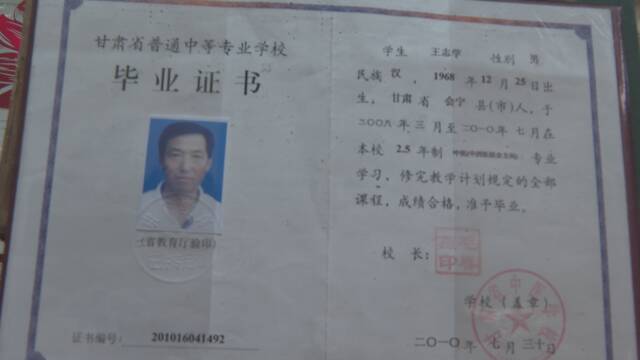 甘肃省普通中等专业学校
毕业证书
(省教育厅验印)
证书编号: 201016041492
学生 王志学 性别 男
民族 汉, 1968 年 12 月 25 日出
生, 甘肃 省 会宁 县(市)人, 于
二00八年 三 月至 二0一0年 七 月在
本校 2.5 年制 专业
学习, 修完教学计划规定的全部
课程, 成绩合格, 准予毕业。
校 长:
学校(盖章)
二0一0年 七 月 三十日